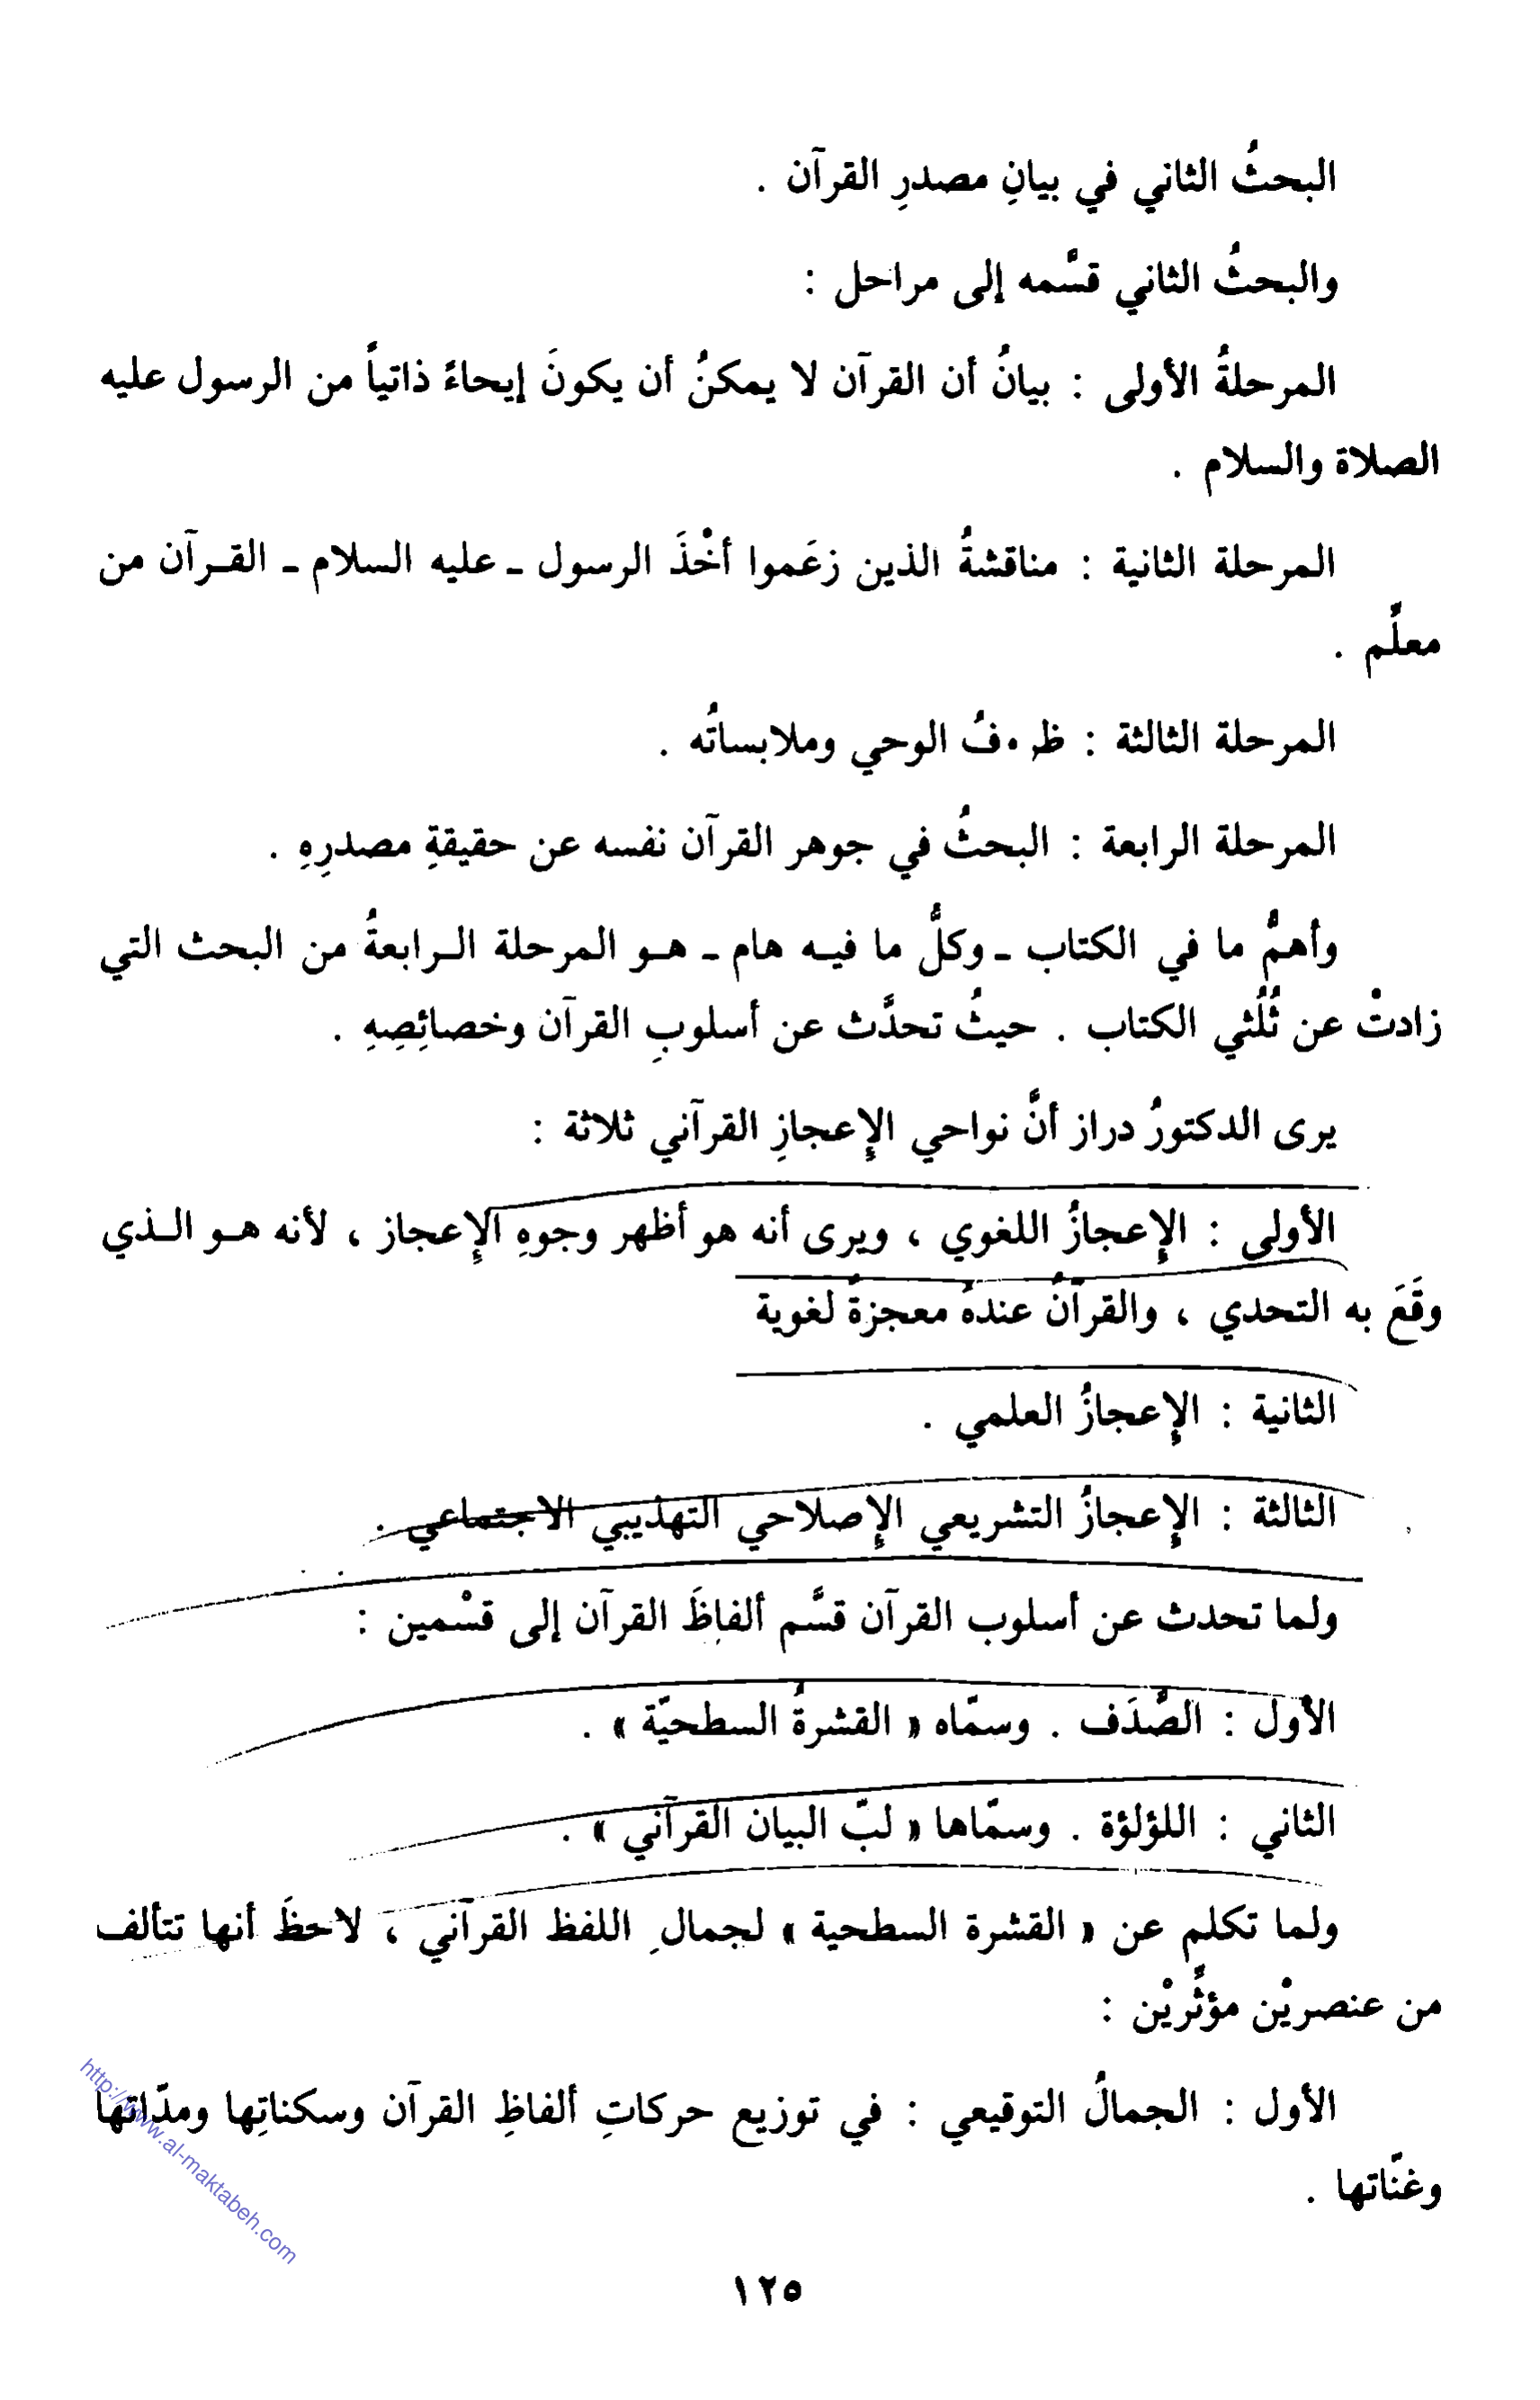 البحثُ الثاني في بيانِ مصدرِ القرآن .
والبحثُ الثاني قسَّمه إلى مراحل :
المرحلةُ الأولى : بيانُ أن القرآن لا يمكنُ أن يكونَ إيحاءً ذاتياً من الرسول عليه
الصلاة والسلام .
المرحلة الثانية : مناقشةُ الذين زعَموا أخْذَ الرسول ـ عليه السلام ـ القـرآن من
معلِّم .
المرحلة الثالثة : ظروفُ الوحي وملابساتُه .
المرحلة الرابعة : البحثُ في جوهر القرآن نفسه عن حقيقةِ مصدرِهِ .
وأهمُّ ما في الكتاب ـ وكلُّ ما فيـه هام ـ هـو المرحلة الـرابعةُ من البحث التي
زادتْ عن ثُلُثي الكتاب . حيثُ تحدَّث عن أسلوبِ القرآن وخصائِصِهِ .
يرى الدكتورُ دراز أنَّ نواحي الإعجازِ القرآني ثلاثة :
الأولى : الإعجازُ اللغوي ، ويرى أنه هو أظهر وجوهِ الإعجاز ، لأنه هـو الـذي
وقَعَ به التحدي ، والقرآنُ عندهُ معجزةٌ لغوية
الثانية : الإعجازُ العلمي .
الثالثة : الإعجازُ التشريعي الإصلاحي التهذيبي الاجتماعي .
ولما تحدث عن أسلوب القرآن قسَّم ألفاظَ القرآن إلى قسْمين :
الأول : الصَّدَف . وسمّاه « القشرةُ السطحيّة » .
الثاني : اللؤلؤة . وسمّاها « لبّ البيان القرآني » .
ولما تكلم عن « القشرة السطحية » لجمالِ اللفظ القرآني ، لاحظَ أنها تتألف
من عنصريْن مؤثِّريْن :
الأول : الجمالُ التوقيعي : في توزيع حركاتِ ألفاظِ القرآن وسكناتِها ومدّاتها
وغنّاتها .
١٢٥
http://www.al-maktabeh.com